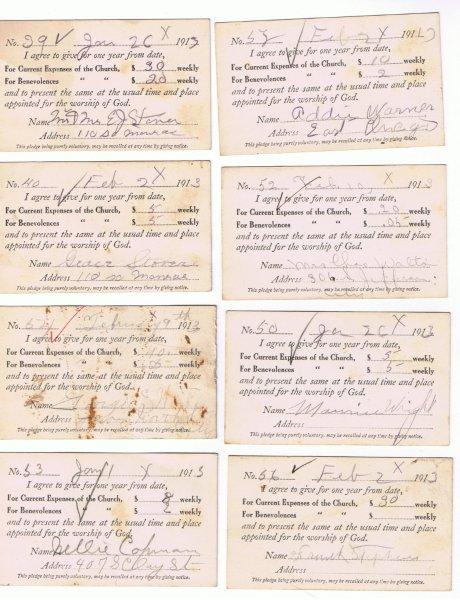 No. 39 √ Jan 26 X 1913
I agree to give for one year from date,
For Current Expenses of the Church, $ 30 weekly
For Benevolences " " $ 20 weekly
and to present the same at the usual time and place
appointed for the worship of God.
Name Mr Mrs E J Stoner
Address 110 So Monroe
This pledge being purely voluntary, may be recalled at any time by giving notice.
No. Feb 2 X 1913
I agree to give for one year from date,
For Current Expenses of the Church, $ 10 weekly
For Benevolences " " $ 2 weekly
and to present the same at the usual time and place
appointed for the worship of God.
Name Addie Warner
Address East
This pledge being purely voluntary, may be recalled at any time by giving notice.
No. 40 Feb 2 X 1913
I agree to give for one year from date,
For Current Expenses of the Church, $ 5 weekly
For Benevolences " " $ 5 weekly
and to present the same at the usual time and place
appointed for the worship of God.
Name Grace Stoner
Address 110 so Monroe
This pledge being purely voluntary, may be recalled at any time by giving notice.
No. 52 Feb. X 1913
I agree to give for one year from date,
For Current Expenses of the Church, $ 20 weekly
For Benevolences " " $ .05 weekly
and to present the same at the usual time and place
appointed for the worship of God.
Name Mrs
Address 306
This pledge being purely voluntary, may be recalled at any time by giving notice.
No. February 9th 1913
I agree to give for one year from date,
For Current Expenses of the Church, $ 10 weekly
For Benevolences " " $ 05 weekly
and to present the same at the usual time and place
appointed for the worship of God.
Name
Address
This pledge being purely voluntary, may be recalled at any time by giving notice.
No. 50 Jan 26 X 1913
I agree to give for one year from date,
For Current Expenses of the Church, $ 5 weekly
For Benevolences " " $ 5 weekly
and to present the same at the usual time and place
appointed for the worship of God.
Name Mannie Wright
Address
This pledge being purely voluntary, may be recalled at any time by giving notice.
No. 53 Jany 1 X 1913
I agree to give for one year from date,
For Current Expenses of the Church, $ 8 weekly
For Benevolences " " $ 2 weekly
and to present the same at the usual time and place
appointed for the worship of God.
Name Nellie Copman
Address 407 S Clay St
This pledge being purely voluntary, may be recalled at any time by giving notice.
No. 56 √ Feb 2 X 1913
I agree to give for one year from date,
For Current Expenses of the Church, $ 30 weekly
For Benevolences " " $ weekly
and to present the same at the usual time and place
appointed for the worship of God.
Name
Address
This pledge being purely voluntary, may be recalled at any time by giving notice.